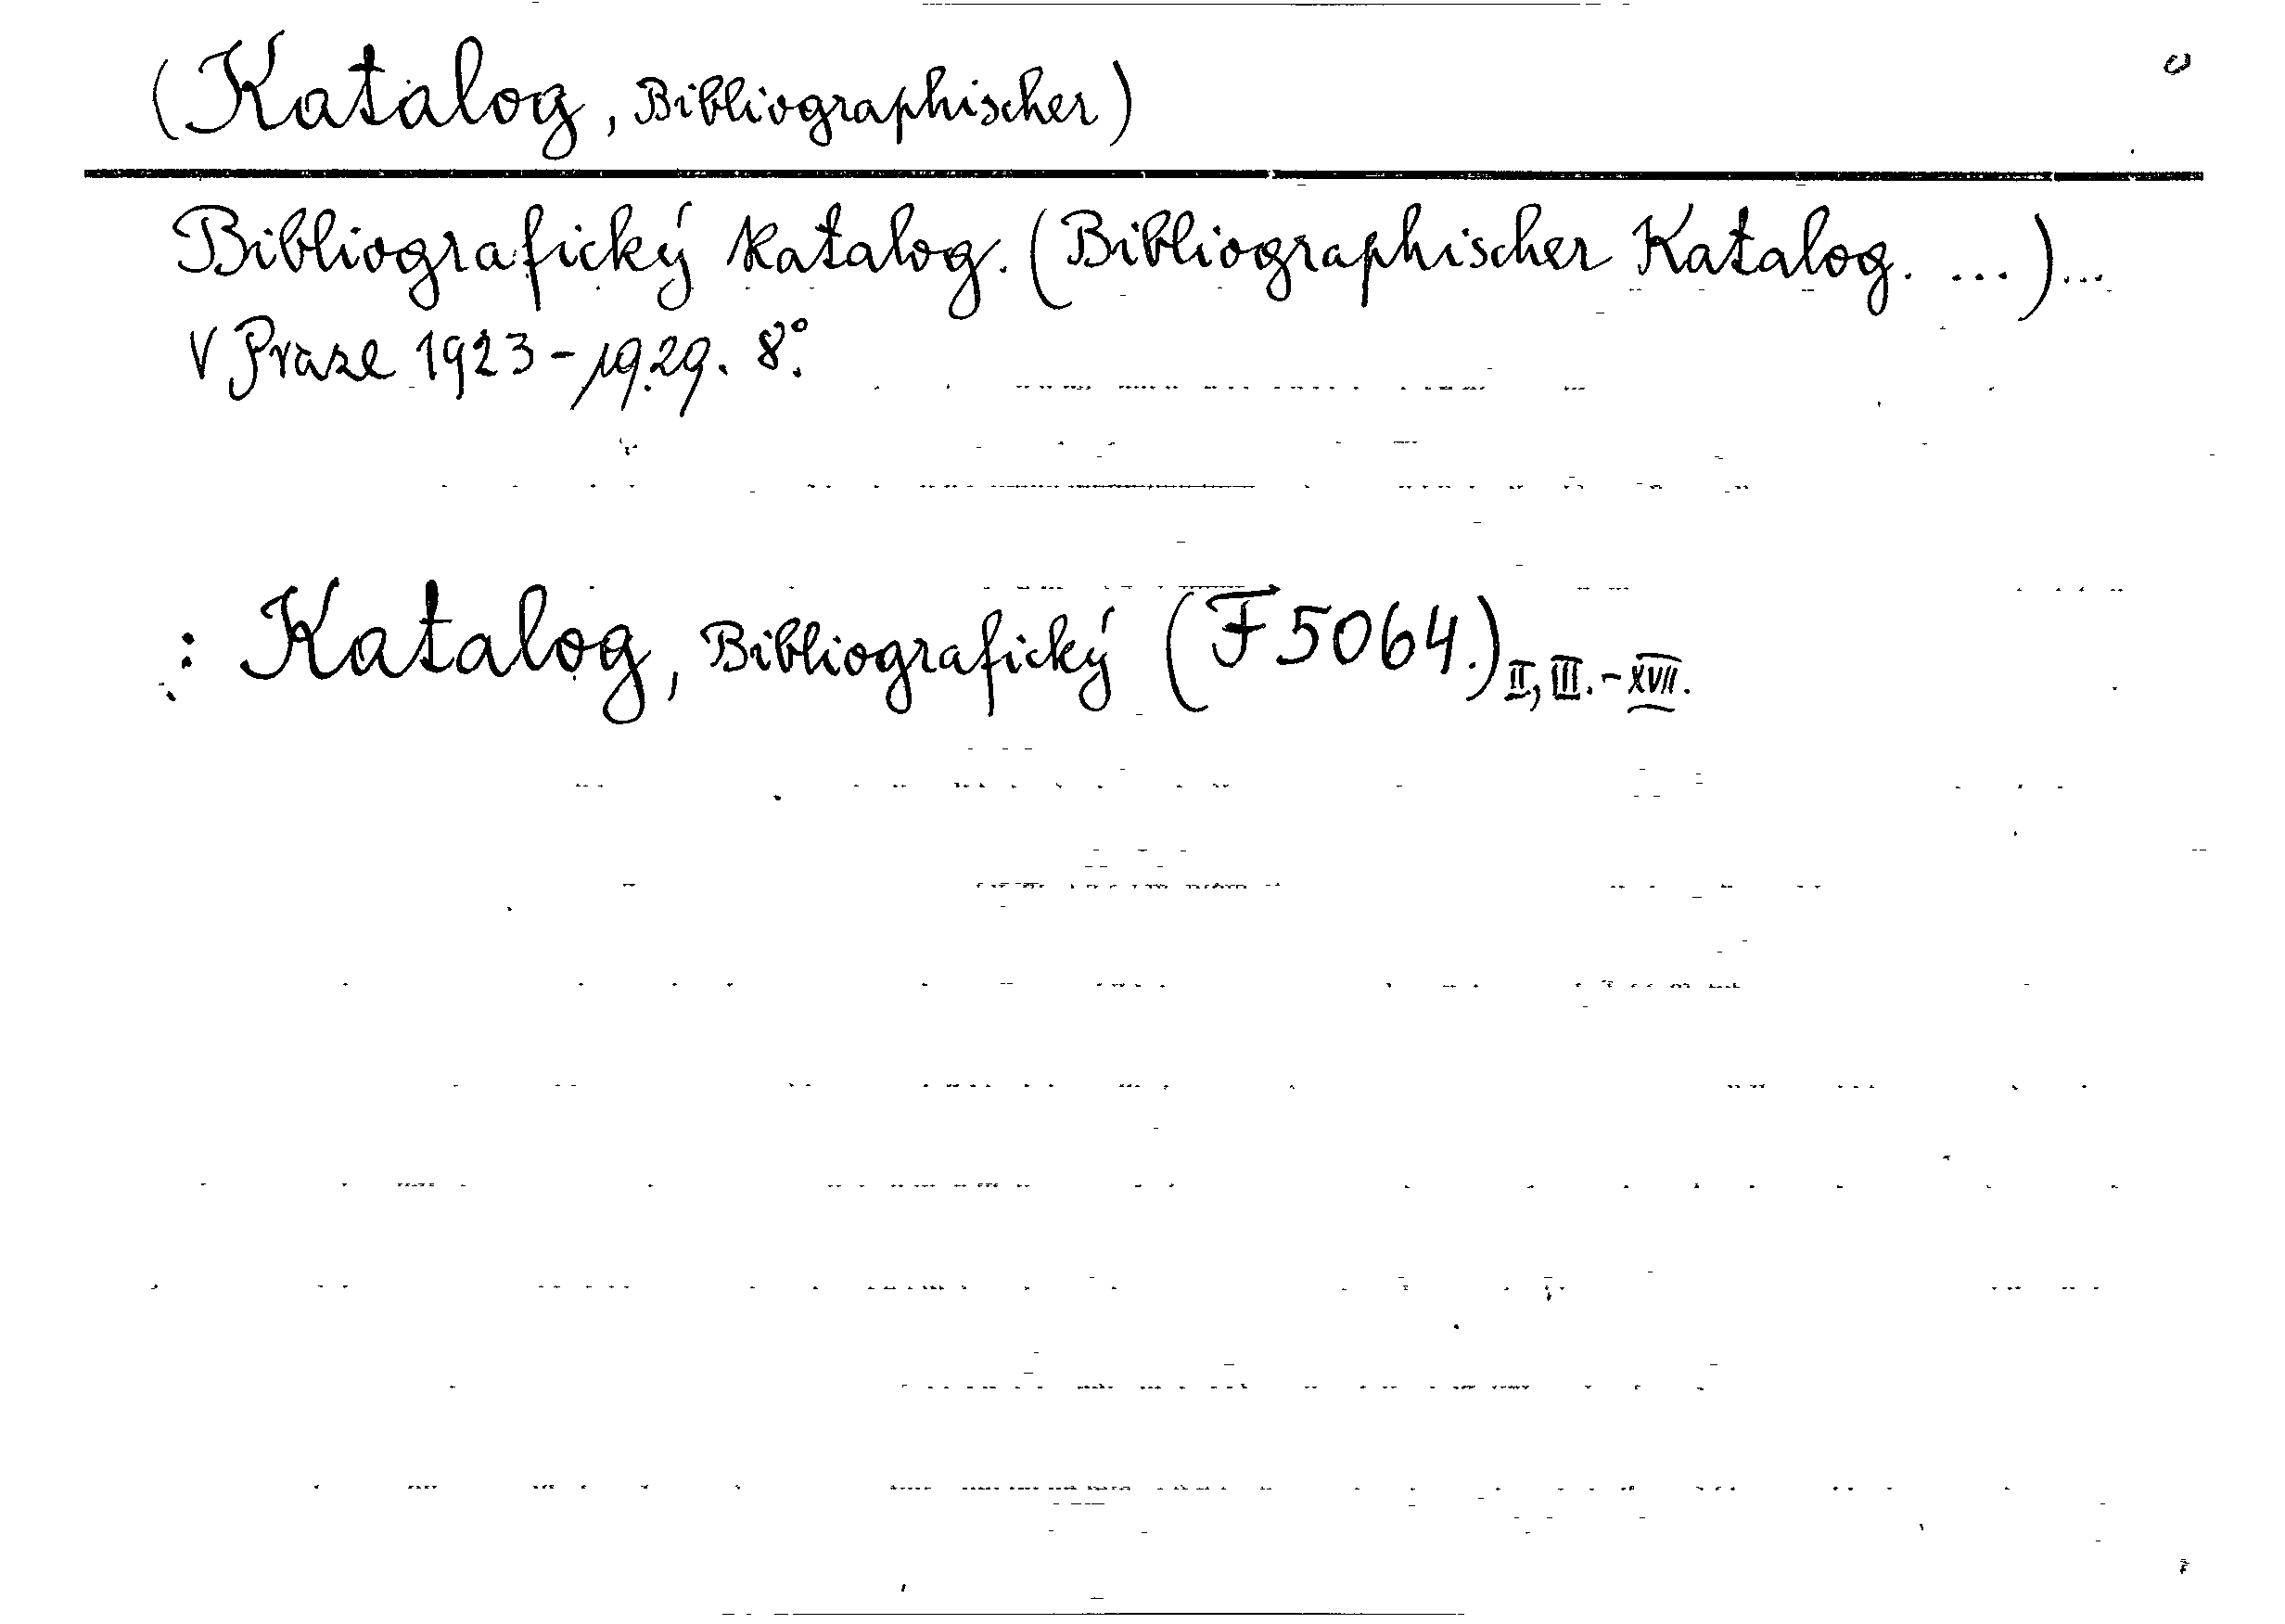 (Katalog, Bibliographischer)
Bibliografický katalog. (Bibliographischer Katalog. ...)...
V Praze 1923-1929. 8°.
: Katalog, Bibliografický (F 5064.) II, III.-XVII.